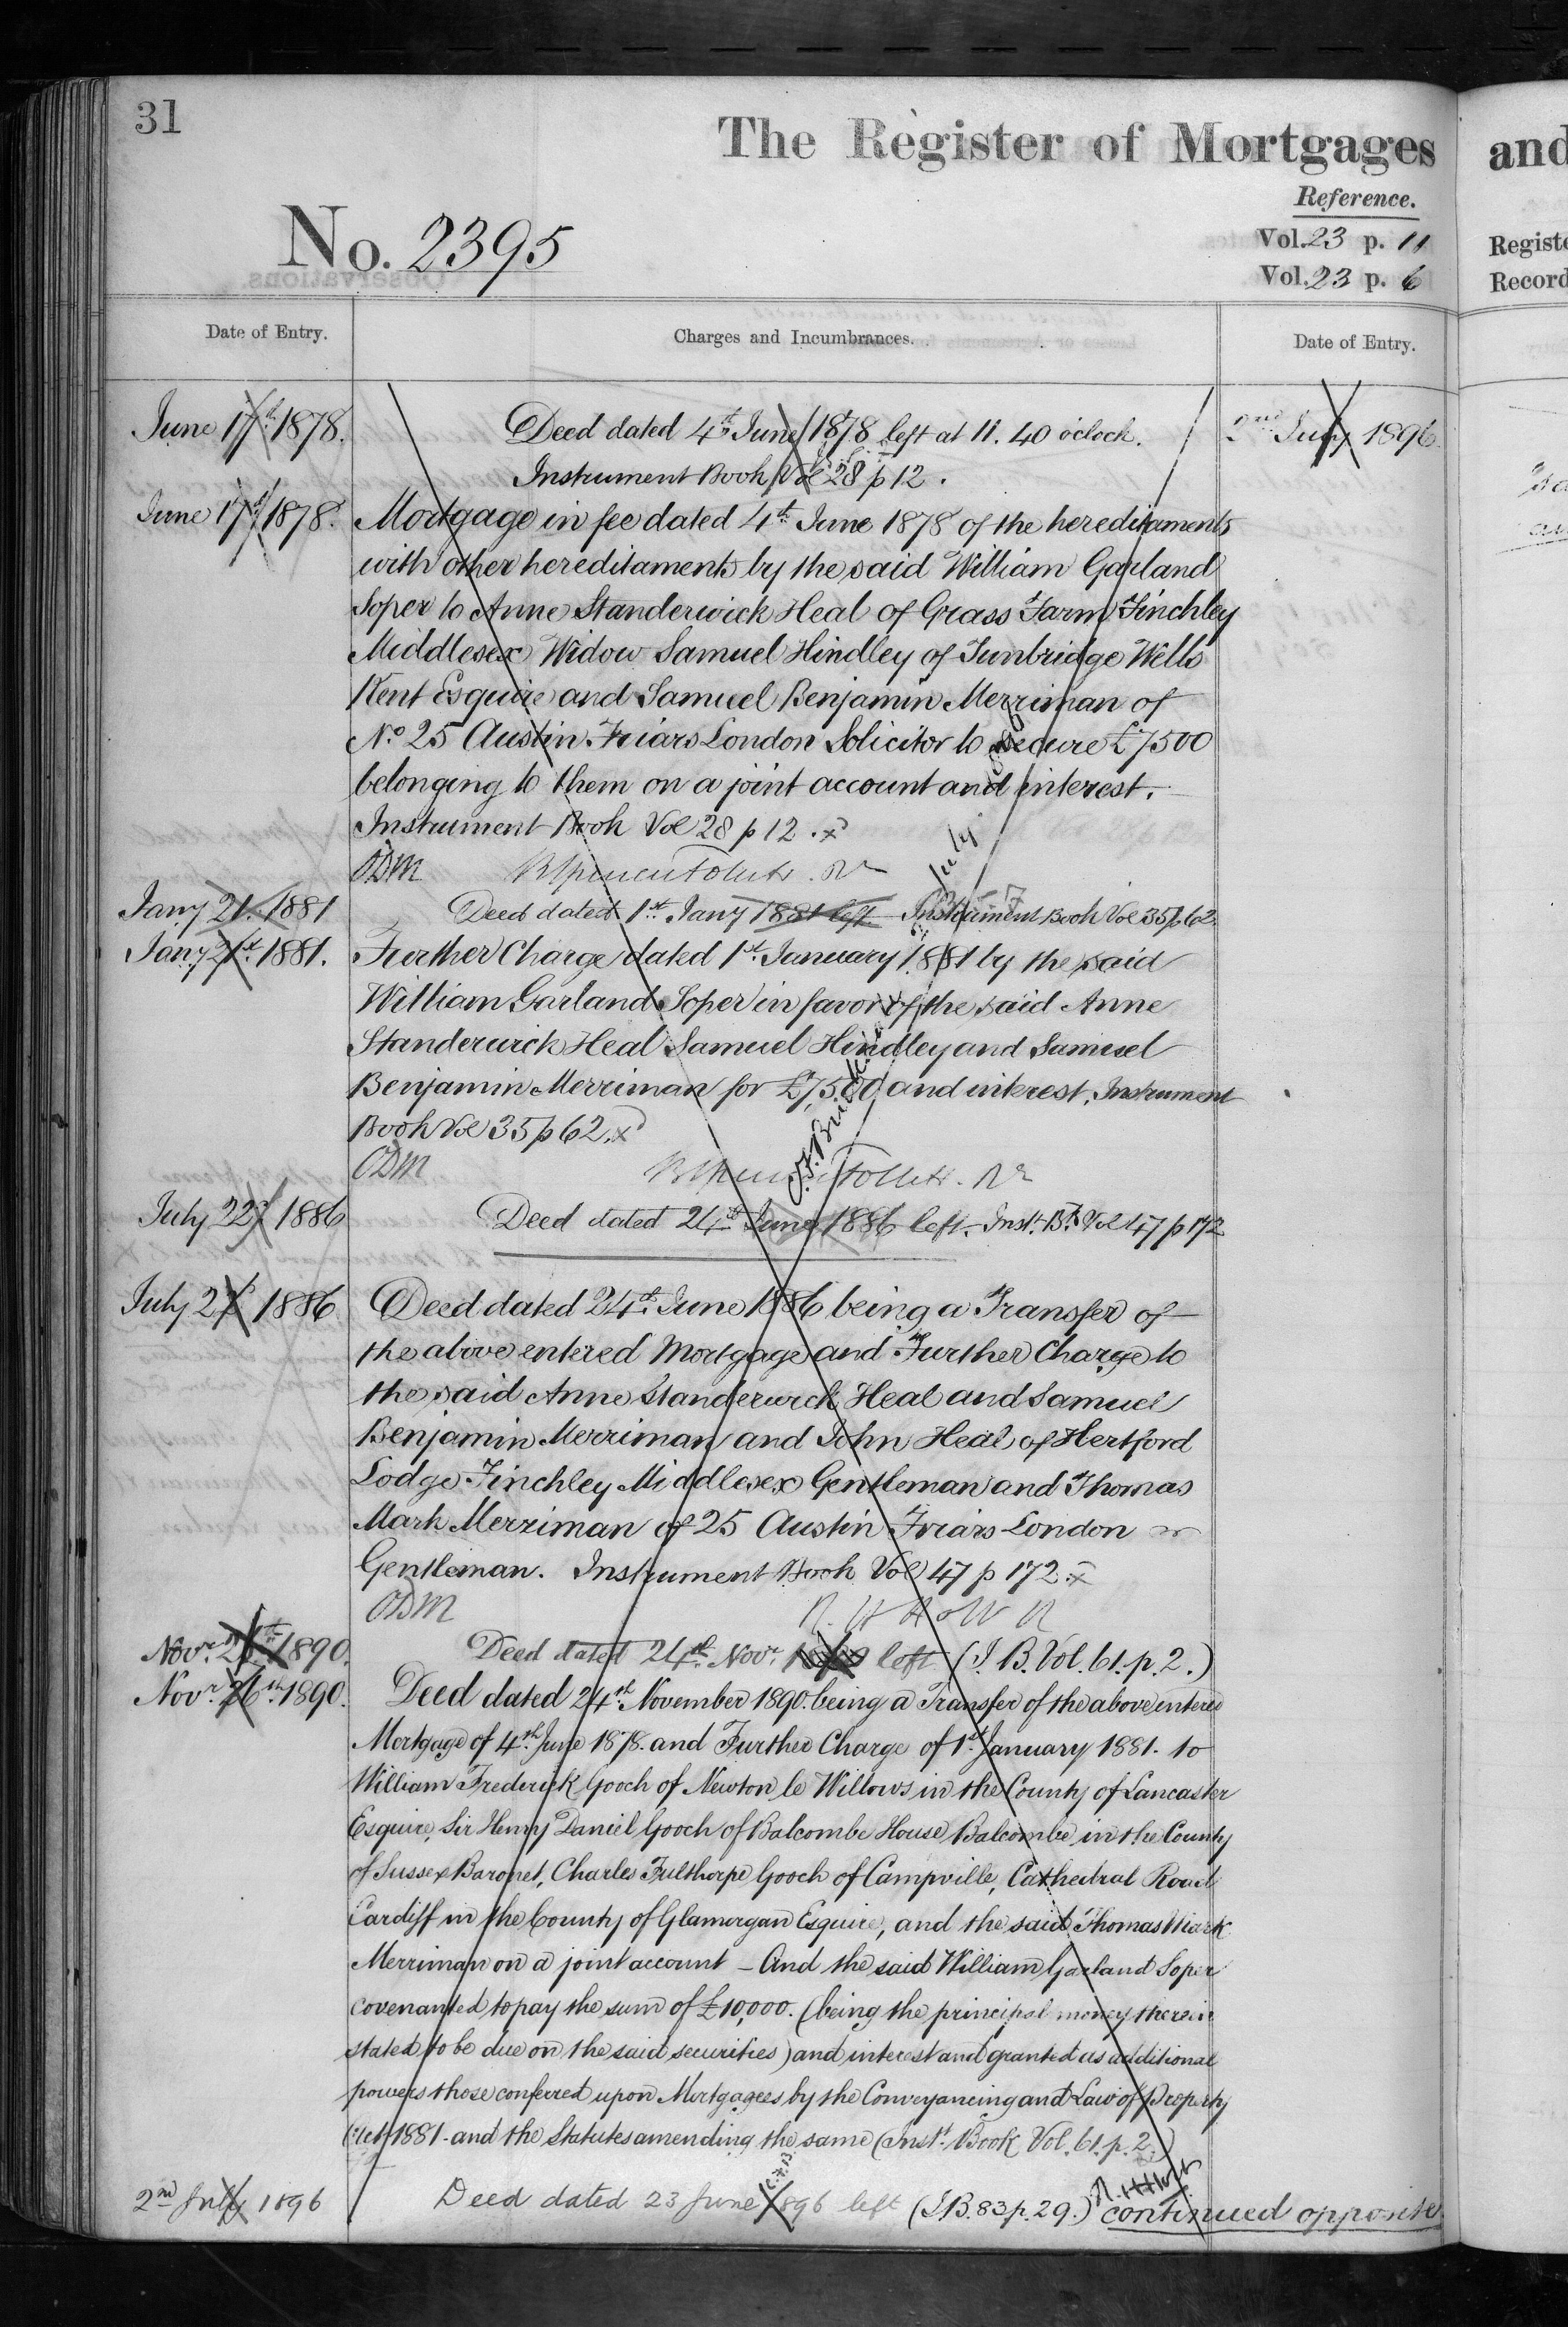 31
The Register of Mortgages
and
Reference.
No. 2395
Vol. 23 p. 11
Vol. 23 p. 6
Registe
Record
Date of Entry.
Charges and Incumbrances.
Date of Entry.
June 17th 1878.
Deed dated 4th June 1878 left at 11. 40 oclock.
2nd July 1896
Instrument Book Vol 28 p 12.
June 17th 1878.
Mortgage in fee dated 4th June 1878 of the hereditaments
with other hereditaments by the said William Garland
Soper to Anne Standerwick Heal of Grass Farm Finchley
Middlesex Widow Samuel Hindley of Tunbridge Wells
Kent Esquire and Samuel Benjamin Merriman of
No. 25 Austin Friars London Solicitor to secure £7500
belonging to them on a joint account and interest.
Instrument Book Vol 28 p 12. x
ODM
Jany 21. 1881
Deed dated 1st Jany 1881 left Instrument Book Vol 35 p 62.
Jany 21st 1881.
Further Charge dated 1st January 1881 by the said
William Garland Soper in favor of the said Anne
Standerwick Heal Samuel Hindley and Samuel
Benjamin Merriman for £7,500 and interest. Instrument
Book Vol 35 p 62. x
ODM
July 22 1886
Deed dated 24th June 1886 left. Inst. Bk Vol 47 p 172
July 2 1886
Deed dated 24th June 1886 being a Transfer of
the above entered Mortgage and Further Charge to
the said Anne Standerwick Heal and Samuel
Benjamin Merriman and John Heal of Hertford
Lodge Finchley Middlesex Gentleman and Thomas
Mark Merriman of 25 Austin Friars London
Gentleman. Instrument Book Vol 47 p 172. x
ODM
Novr. 26th 1890.
Deed dated 24th Novr. 1890 left (I. B. Vol. 61. p. 2.)
Novr. 26th 1890.
Deed dated 24th November 1890. being a Transfer of the above entered
Mortgage of 4th June 1878. and Further Charge of 1st January 1881. to
William Frederick Gooch of Newton le Willows in the County of Lancaster
Esquire, Sir Henry Daniel Gooch of Balcombe House Balcombe in the County
of Sussex Baronet, Charles Fulthorpe Gooch of Campville, Cathedral Road
Cardiff in the County of Glamorgan Esquire, and the said Thomas Mark
Merriman on a joint account - And the said William Garland Soper
covenanted to pay the sum of £10,000. (being the principal money therein
stated to be due on the said securities) and interest and granted as additional
powers those conferred upon Mortgagees by the Conveyancing and Law of Property
Act 1881. and the Statutes amending the same (Inst. Book Vol. 61. p. 2.)
2nd July 1896
Deed dated 23 June 1896 left (I.B. 83 p. 29.) continued opposite